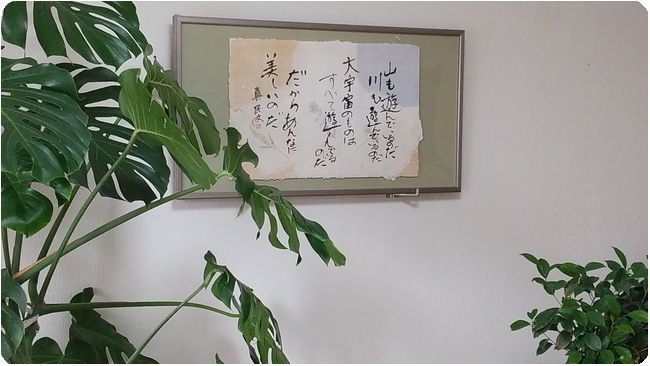 山も遊んでいるのだ
川も遊んでいるのだ
大宇宙のものは
すべて遊んでる
のだ
だからあんなに
美しいのだ
真民